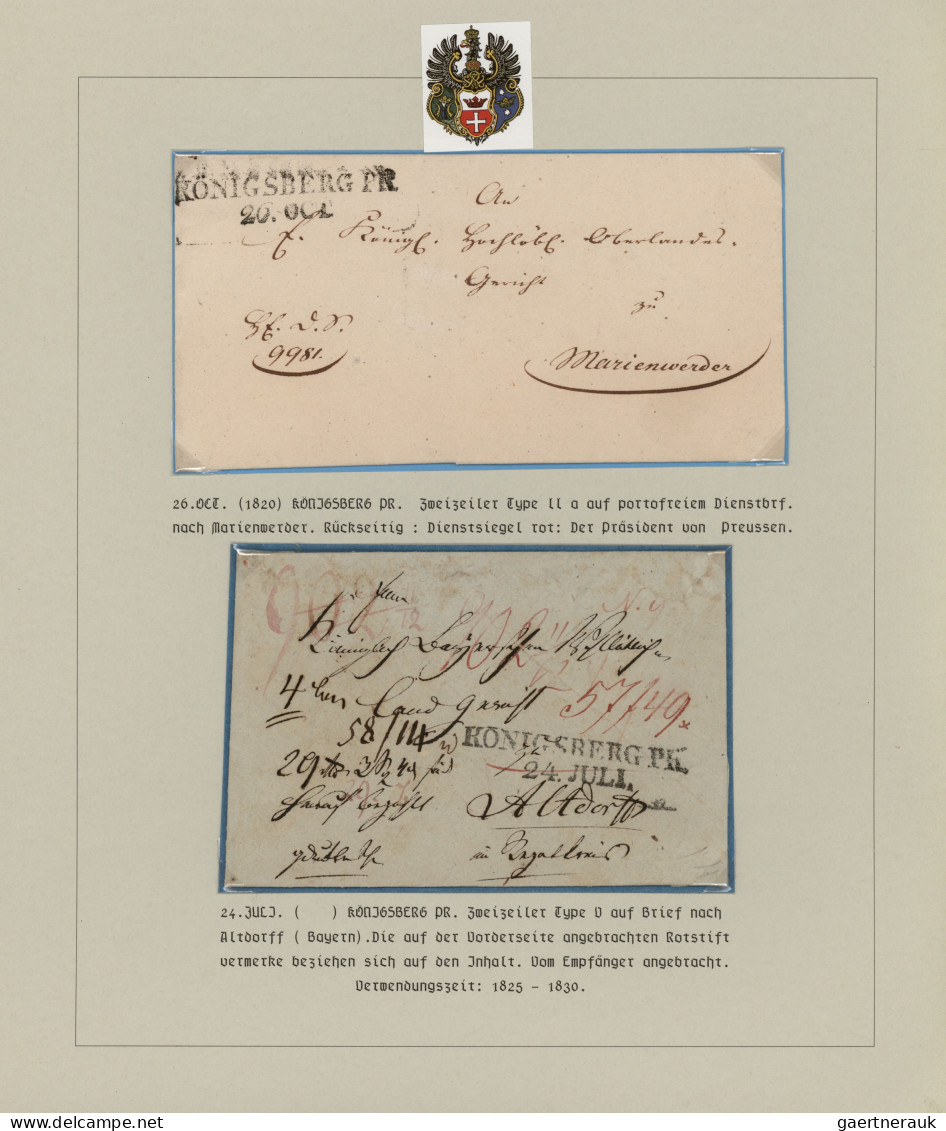 KÖNIGSBERG PR.
26. OCT
An
E. Königl. Hochlöbl. Oberlandes-
Gericht
zu
9981.
Marienwerder
26.OCT. (1820) KÖNIGSBERG PR. Zweizeiler Type II a auf portofreiem Dienstbrf.
nach Marienwerder. Rückseitig : Dienstsiegel rot: Der Präsident von Preussen.
4
Land Gericht
57/49
58/114
KÖNIGSBERG PR.
24. JULI.
Altdorff
im Rezatkreis
24.JULI. ( ) KÖNIGSBERG PR. Zweizeiler Type V auf Brief nach
Altdorff ( Bayern).Die auf der Vorderseite angebrachten Rotstift
vermerke beziehen sich auf den Inhalt. Vom Empfänger angebracht.
Verwendungszeit: 1825 - 1830.
gaertnerauk